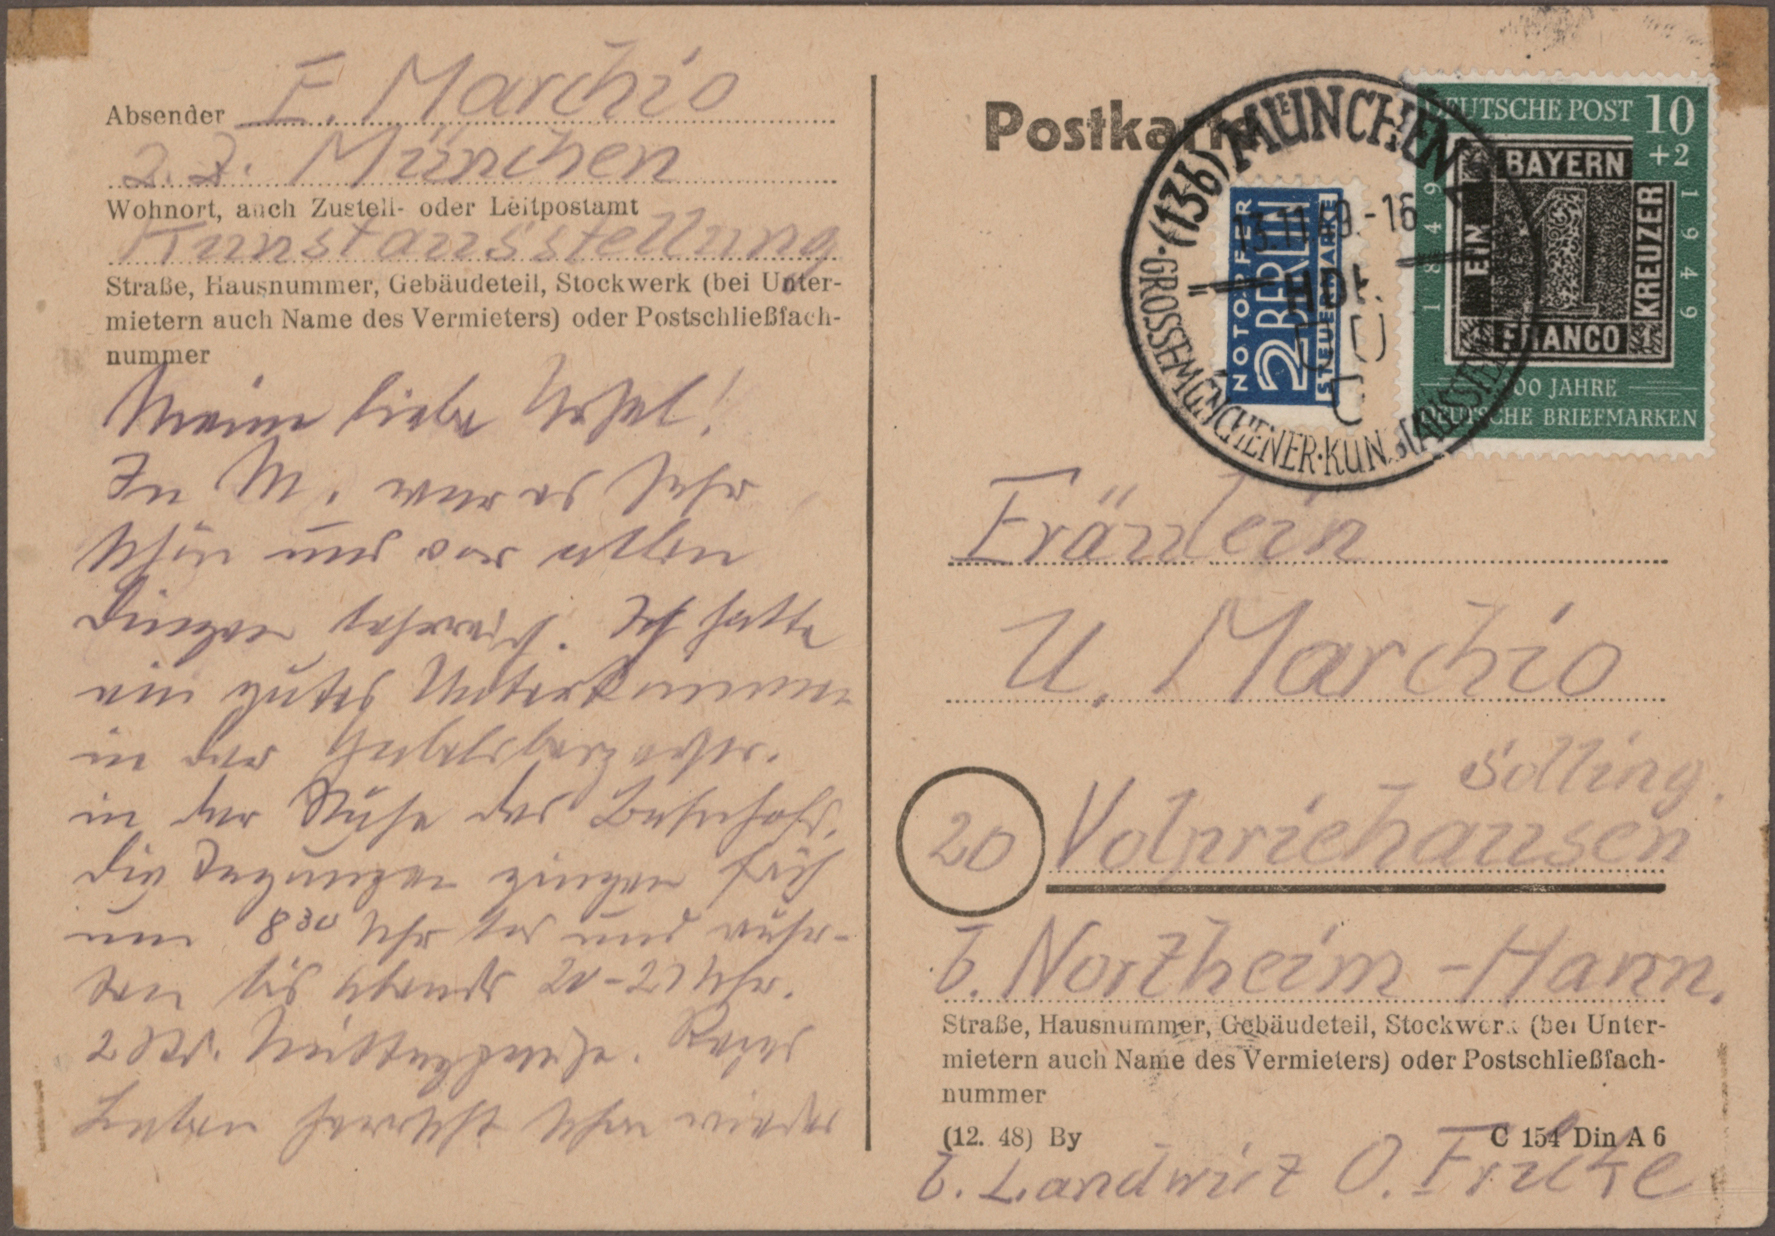 Absender E. Marchio
z. Z. München
Wohnort, auch Zustell- oder Leitpostamt
Kunstausstellung
Straße, Hausnummer, Gebäudeteil, Stockwerk (bei Unter-
mietern auch Name des Vermieters) oder Postschließfach-
nummer
Meine liebe Ursel!
In M. war es sehr
schön und vor allen
Dingen lehrreich. Ich hatte
ein gutes Unterkommen
in der
in der Nähe des Bahnhofs.
Die Tagungen gingen früh
um 8³⁰ Uhr los und
bis abends 20-21 Uhr.
2 Std. Mittagspause.
Leben herrscht schon wieder
Postkarte
(13b) MÜNCHEN
13.11.49.-16
GROSSE MÜNCHENER·KUNSTAUSSTELLUNG
NOTOPFER
2 BERLIN
STEUERMARKE
DEUTSCHE POST 10
+2
1849
1949
BAYERN
EIN
1
KREUZER
FRANCO
100 JAHRE
DEUTSCHE BRIEFMARKEN
Fräulein
U. Marchio
Solling.
20 Volpriehausen
b. Northeim - Hann.
Straße, Hausnummer, Gebäudeteil, Stockwerk (bei Unter-
mietern auch Name des Vermieters) oder Postschließfach-
nummer
(12. 48) By C 154 Din A 6
b. Landwirt O. Fricke